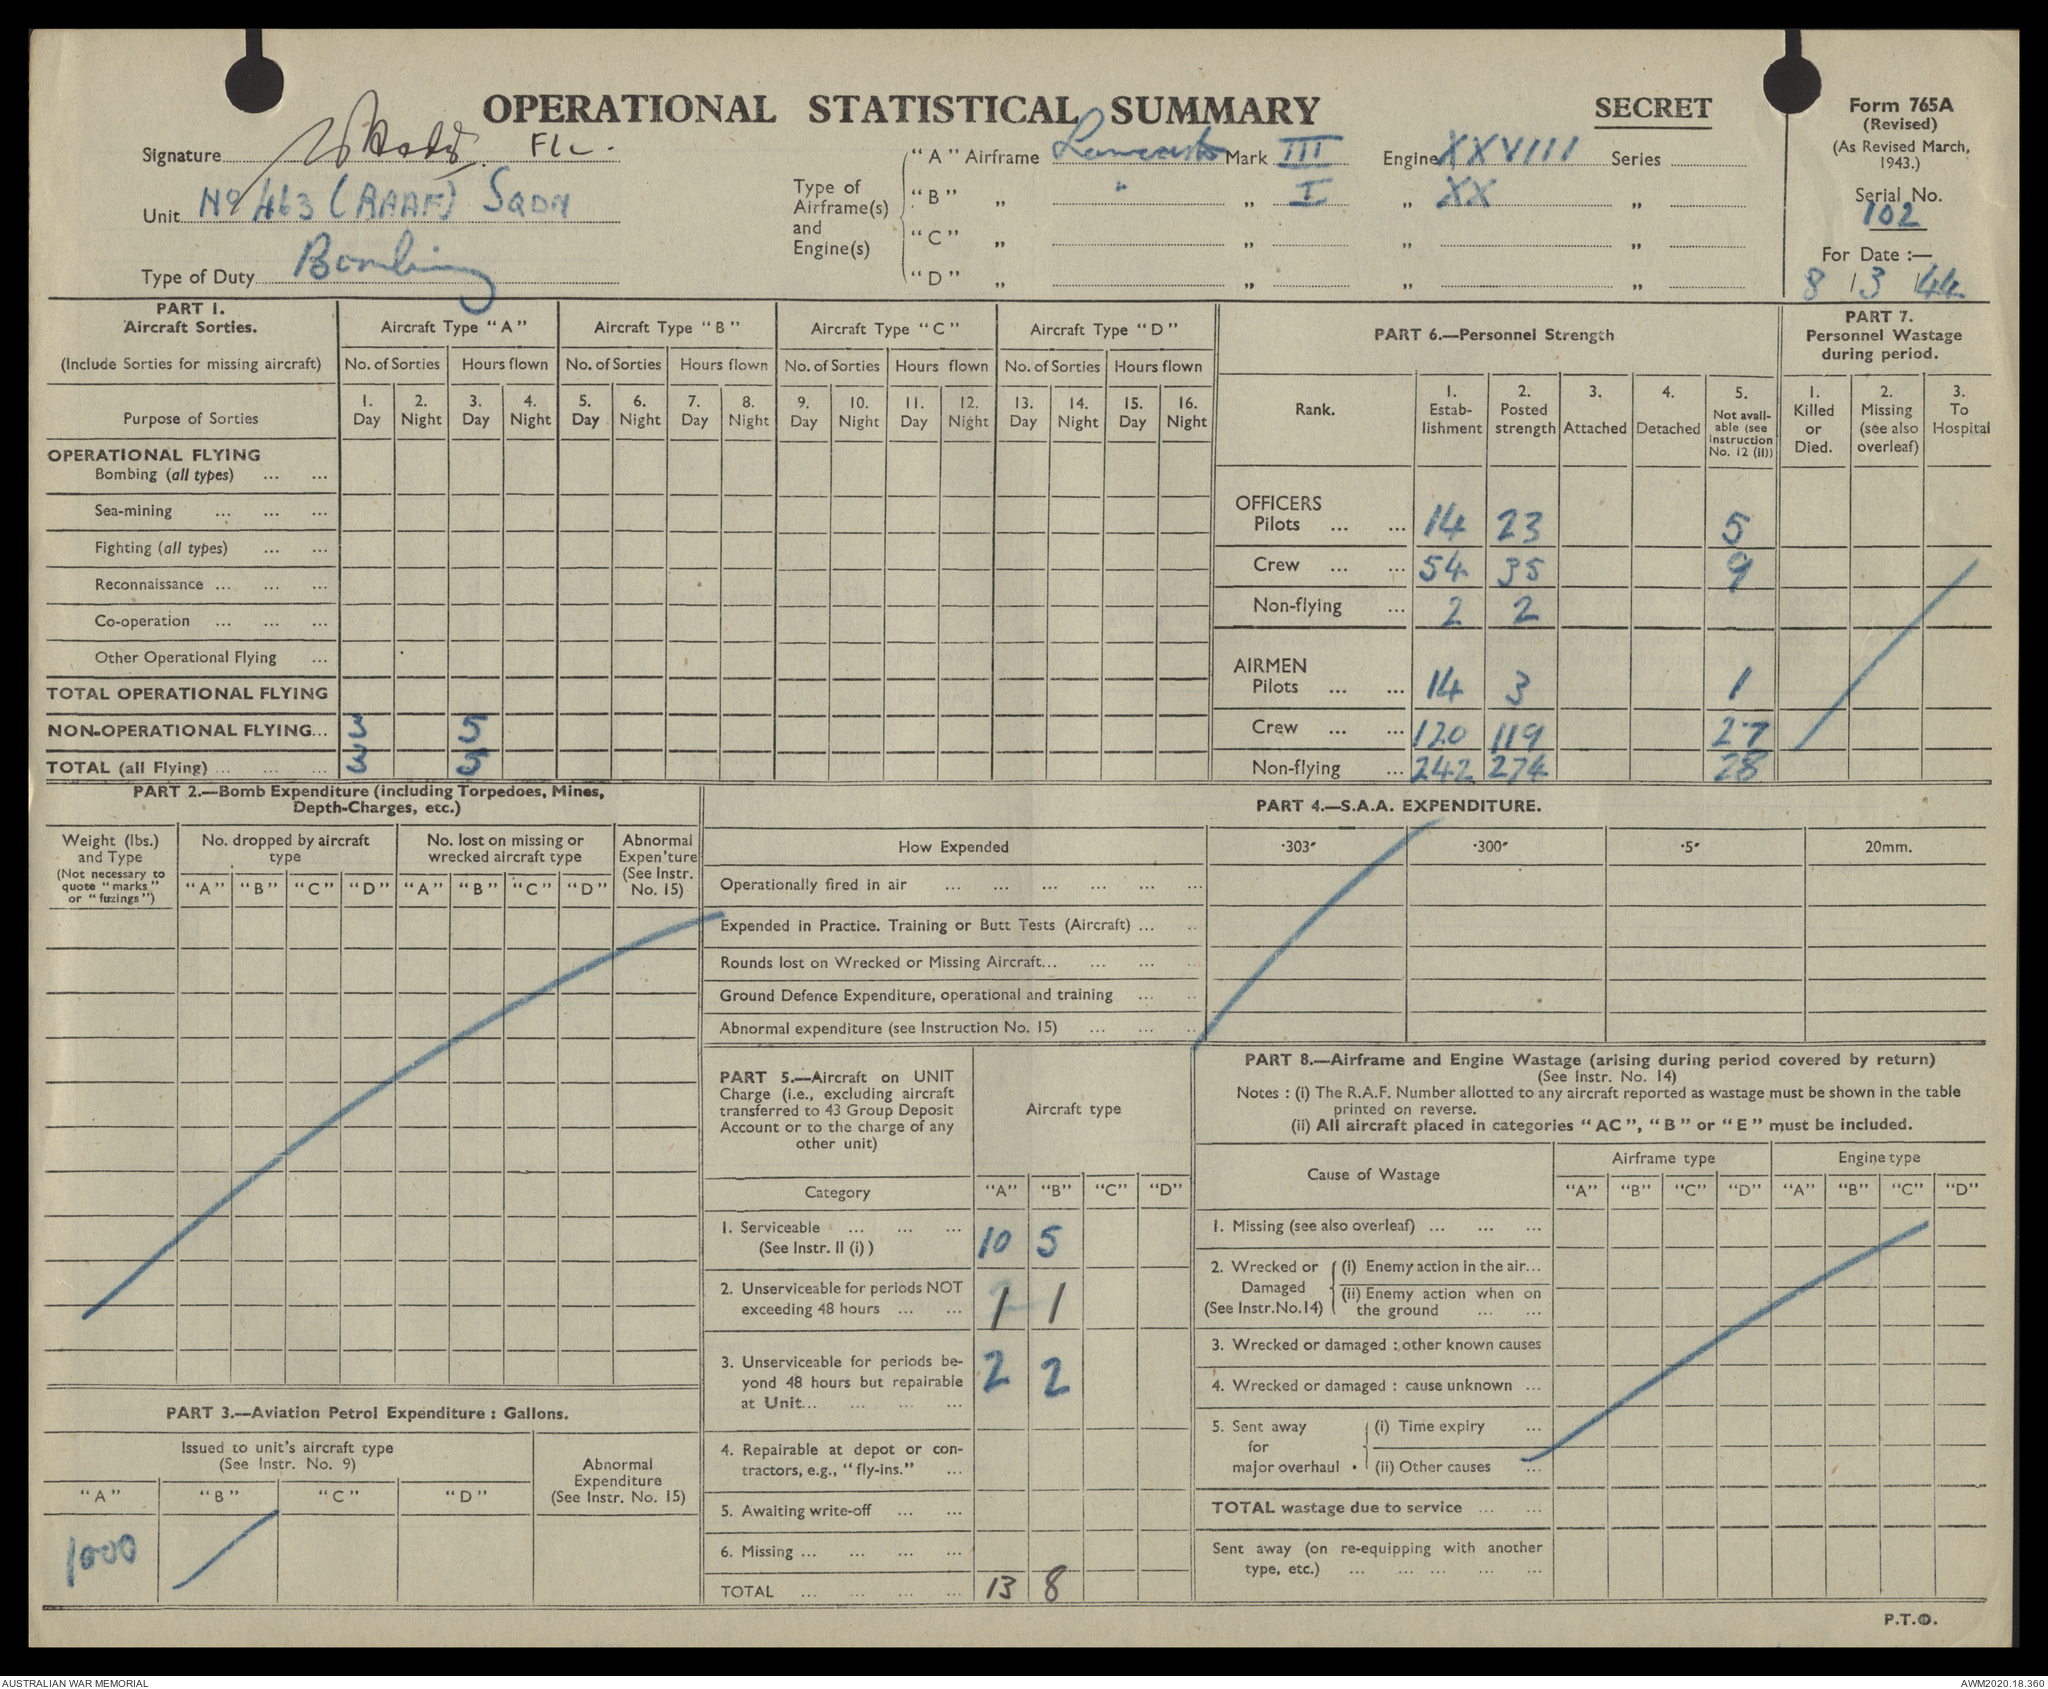 OPERATIONAL STATISTICAL SUMMARY
SECRET
Form 765A
(Revised)
(As Revised March,
1943.)
Serial No.
102
For Date :—
8 / 3 / 44
Signature Flt.
Unit No 463 (RAAF) SQDN
Type of Duty Bombing
Type of
Airframe(s)
and
Engine(s)
"A" Airframe Lancaster Mark III Engine XXVIII Series
"B" „ " „ I „ XX „
"C" „ „ „ „
"D" „ „ „ „
PART 1.
Aircraft Sorties.
(Include Sorties for missing aircraft)
Purpose of Sorties
Aircraft Type "A" Aircraft Type "B" Aircraft Type "C" Aircraft Type "D"
No. of Sorties Hours flown No. of Sorties Hours flown No. of Sorties Hours flown No. of Sorties Hours flown
1. 2. 3. 4. 5. 6. 7. 8. 9. 10. 11. 12. 13. 14. 15. 16.
Day Night Day Night Day Night Day Night Day Night Day Night Day Night Day Night
OPERATIONAL FLYING
Bombing (all types) ... ...
Sea-mining ... ... ...
Fighting (all types) ... ...
Reconnaissance ... ... ...
Co-operation ... ... ...
Other Operational Flying ...
TOTAL OPERATIONAL FLYING
NON-OPERATIONAL FLYING... 3 5
TOTAL (all Flying) ... ... ... 3 5
PART 6.—Personnel Strength
Rank.
1. Estab-lishment
2. Posted strength
3. Attached
4. Detached
5. Not avail-able (see Instruction No. 12 (II))
OFFICERS
Pilots ... ... 14 23 5
Crew ... ... 54 35 9
Non-flying ... 2 2
AIRMEN
Pilots ... ... 14 3 1
Crew ... ... 120 119 27
Non-flying ... 242 274 28
PART 7.
Personnel Wastage
during period.
1. Killed or Died.
2. Missing (see also overleaf)
3. To Hospital
PART 2.—Bomb Expenditure (including Torpedoes, Mines,
Depth-Charges, etc.)
Weight (lbs.)
and Type
(Not necessary to
quote "marks"
or "fuzings")
No. dropped by aircraft
type
No. lost on missing or
wrecked aircraft type
Abnormal
Expen'ture
(See Instr.
No. 15)
"A" "B" "C" "D" "A" "B" "C" "D"
PART 4.—S.A.A. EXPENDITURE.
How Expended ·303" ·300" ·5" 20mm.
Operationally fired in air ... ... ... ... ... ...
Expended in Practice. Training or Butt Tests (Aircraft) ... ..
Rounds lost on Wrecked or Missing Aircraft... ... ... ..
Ground Defence Expenditure, operational and training ... ..
Abnormal expenditure (see Instruction No. 15) ... ... ..
PART 3.—Aviation Petrol Expenditure : Gallons.
Issued to unit's aircraft type
(See Instr. No. 9)
Abnormal
Expenditure
(See Instr. No. 15)
"A" "B" "C" "D"
1000
PART 5.—Aircraft on UNIT
Charge (i.e., excluding aircraft
transferred to 43 Group Deposit
Account or to the charge of any
other unit)
Aircraft type
Category "A" "B" "C" "D"
1. Serviceable ... ... ...
(See Instr. II (i) ) 10 5
2. Unserviceable for periods NOT
exceeding 48 hours ... ... 1 1
3. Unserviceable for periods be-
yond 48 hours but repairable 2 2
at Unit... ... ... ...
4. Repairable at depot or con-
tractors, e.g., "fly-ins." ...
5. Awaiting write-off ... ...
6. Missing ... ... ... ...
TOTAL ... ... ... ... 13 8
PART 8.—Airframe and Engine Wastage (arising during period covered by return)
(See Instr. No. 14)
Notes : (i) The R.A.F. Number allotted to any aircraft reported as wastage must be shown in the table
printed on reverse.
(ii) All aircraft placed in categories "AC", "B" or "E" must be included.
Cause of Wastage Airframe type Engine type
"A" "B" "C" "D" "A" "B" "C" "D"
1. Missing (see also overleaf) ... ... ...
2. Wrecked or
Damaged
(See Instr.No.14)
(i) Enemy action in the air...
(ii) Enemy action when on
the ground ... ...
3. Wrecked or damaged : other known causes
4. Wrecked or damaged : cause unknown ...
5. Sent away
for
major overhaul
(i) Time expiry ...
(ii) Other causes ...
TOTAL wastage due to service ... ...
Sent away (on re-equipping with another
type, etc.) ... ... ... ... ...
P.T.O.
AUSTRALIAN WAR MEMORIAL
AWM2020.18.360